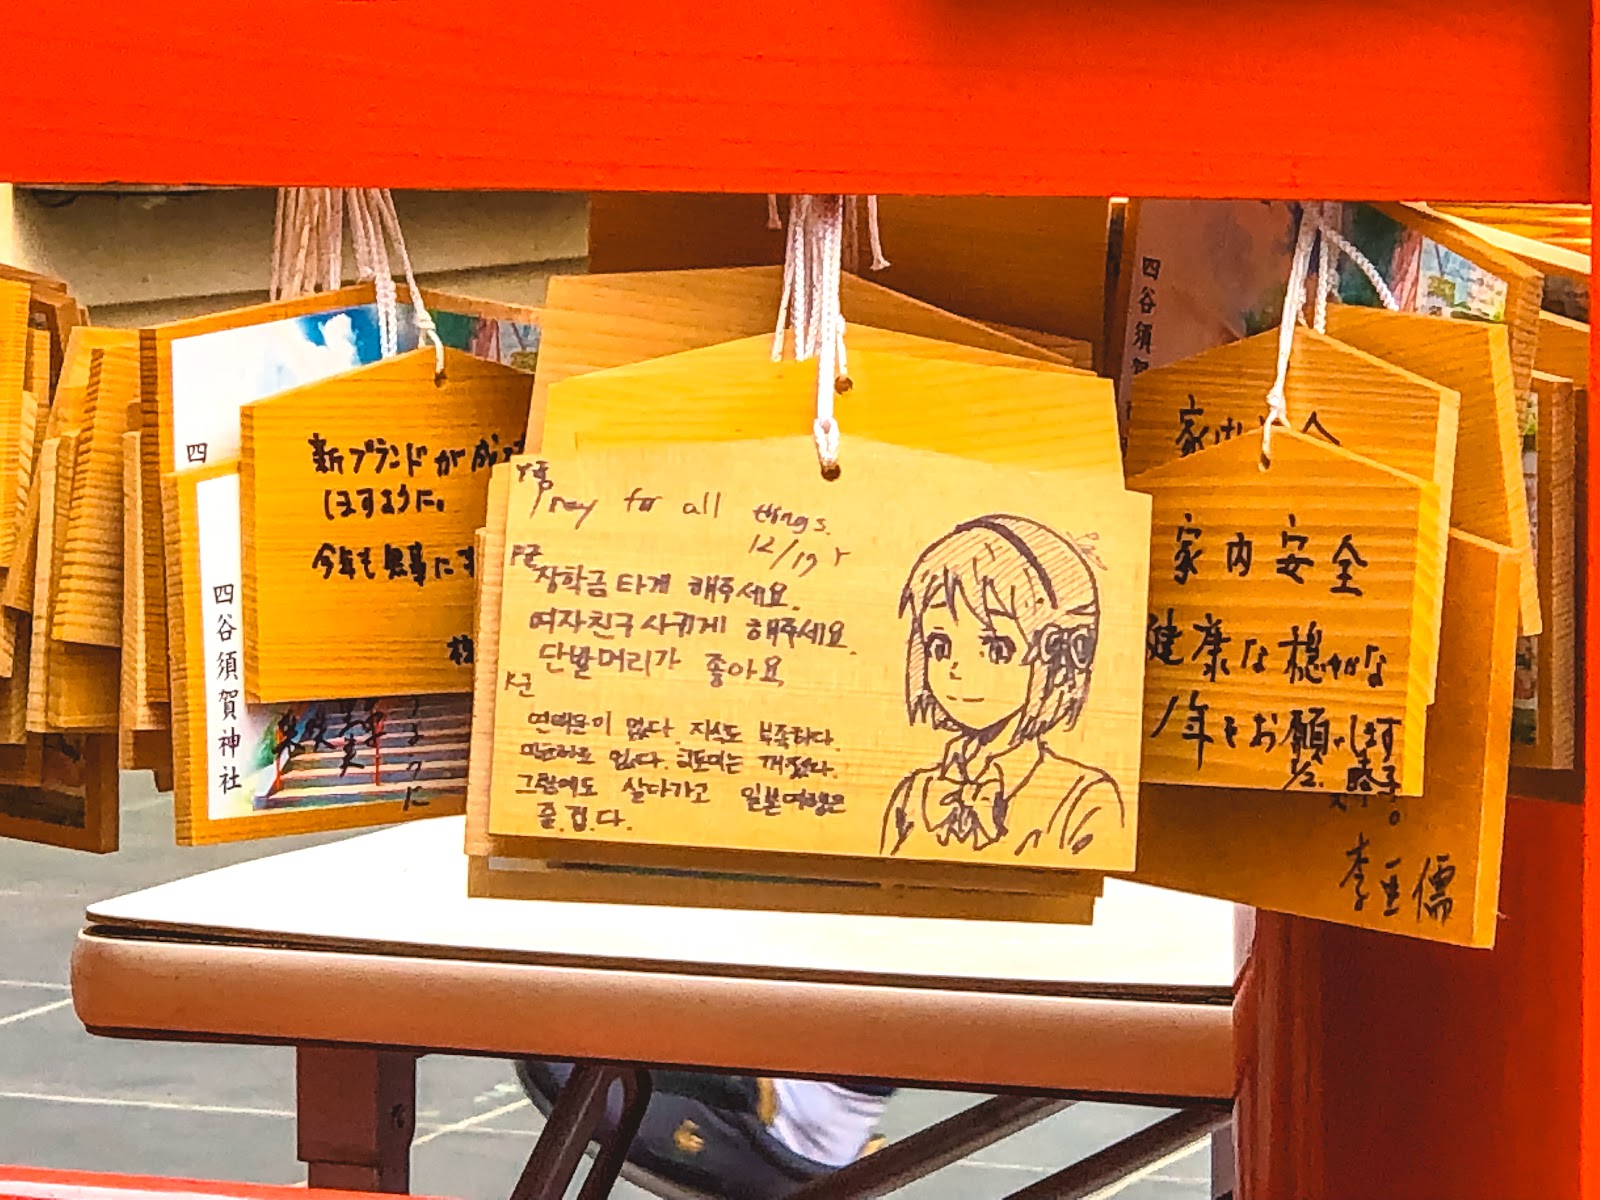 四
四谷須賀神社
新ブランドが
しますように。
今年も無事に
Y군
Pray for all things.
12/19
P군
장학금 타게 해주세요.
여자친구 사귀게 해주세요.
단발머리가 좋아요
K군
연애운이 없다. 지식도 부족하다.
없다. 깨졌다.
그럼에도 살다가고 일본여행은
즐.겁.다.
四谷須賀
家内安全
家内安全
健康な穏やかな
1年をお願いします
1/2.
李亜儒